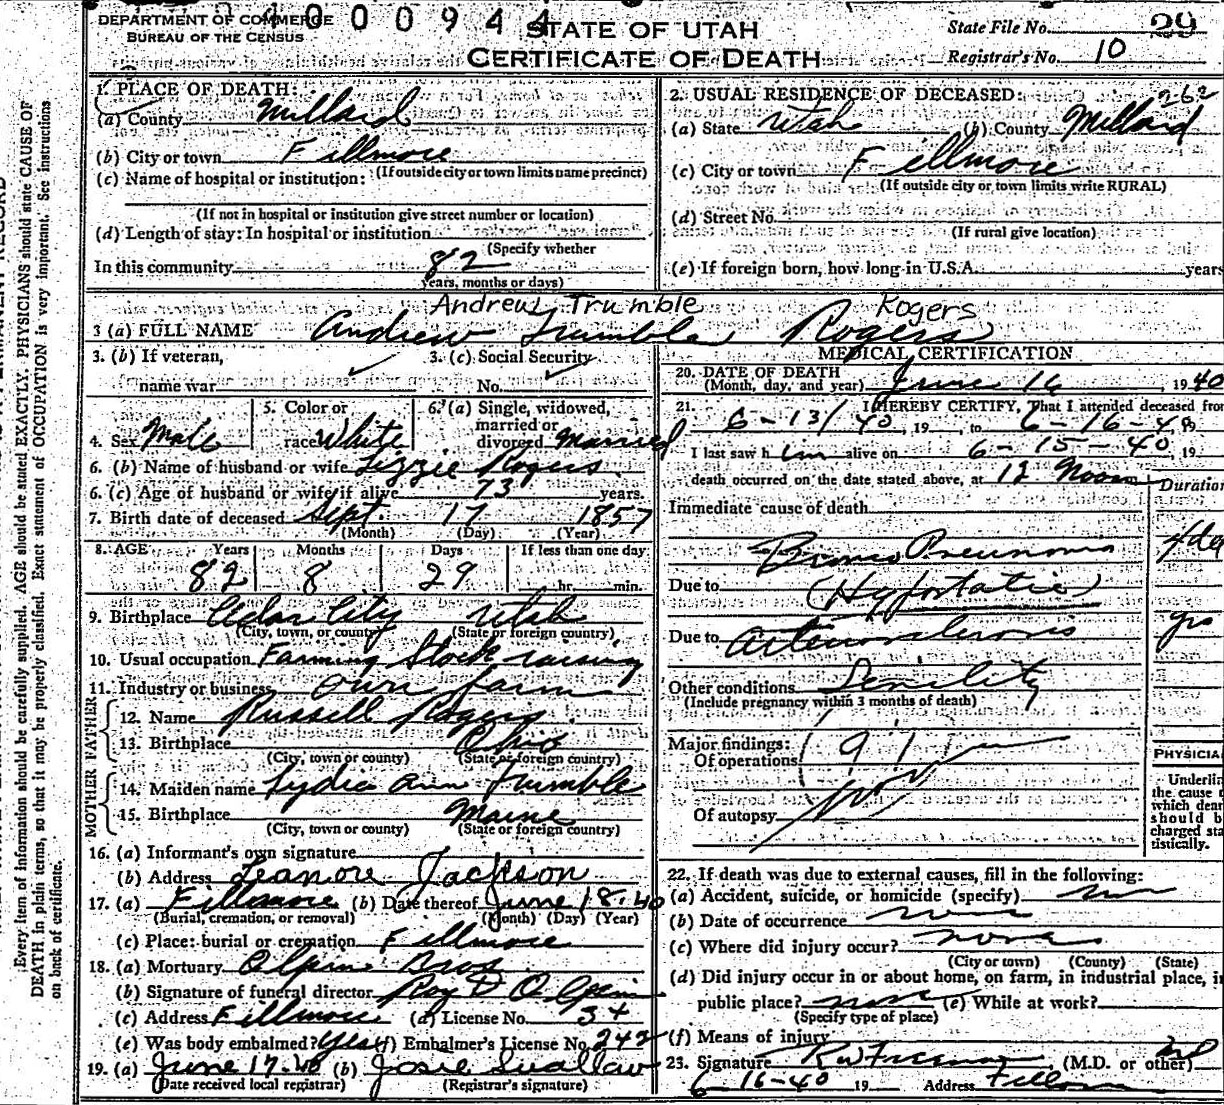 DEPARTMENT OF COMMERCE
BUREAU OF THE CENSUS
0400094 4
STATE OF UTAH
CERTIFICATE OF DEATH
State File No. 29
Registrar's No. 10
1. PLACE OF DEATH:
(a) County Millard
(b) City or town Fillmore
(If outside city or town limits name precinct)
(c) Name of hospital or institution:
(If not in hospital or institution give street number or location)
(d) Length of stay: In hospital or institution
(Specify whether
In this community 82
years, months or days)
2. USUAL RESIDENCE OF DECEASED: 262
(a) State Utah (b) County Millard
(c) City or town Fillmore
(If outside city or town limits write RURAL)
(d) Street No.
(If rural give location)
(e) If foreign born, how long in U.S.A. years
Andrew Trumble Rogers
3 (a) FULL NAME Andrew Trumble Rogers
3. (b) If veteran,
name war
3. (c) Social Security
No.
4. Sex Male
5. Color or
race White
6. (a) Single, widowed,
married or
divorced Married
6. (b) Name of husband or wife Lizzie Rogers
6. (c) Age of husband or wife if alive 73 years.
7. Birth date of deceased Sept. 17 1857
(Month) (Day) (Year)
8. AGE Years Months Days If less than one day
82 8 29 hr. min.
9. Birthplace Cedar City Utah
(City, town, or county) (State or foreign country)
10. Usual occupation Farming Stock raising
11. Industry or business own farm
FATHER
12. Name Russell Rogers
13. Birthplace Ohio
(City, town or county) (State or foreign country)
MOTHER
14. Maiden name Lydia Ann Trumble
15. Birthplace Maine
(City, town or county) (State or foreign country)
16. (a) Informant's own signature
(b) Address Leanore Jackson
17. (a) Fillmore (b) Date thereof June 18-40
(Burial, cremation, or removal) (Month) (Day) (Year)
(c) Place: burial or cremation Fillmore
18. (a) Mortuary Olpin Bros
(b) Signature of funeral director Roy D Olpin
(c) Address Fillmore (d) License No. 34
(e) Was body embalmed? Yes (f) Embalmer's License No. 242
19. (a) June 17-40 (b) Josie Swallow
(Date received local registrar) (Registrar's signature)
MEDICAL CERTIFICATION
20. DATE OF DEATH
(Month, day, and year) June 16, 1940
21. I HEREBY CERTIFY, That I attended deceased from
6-13/40, 19 , to 6-16-40
I last saw him alive on 6-15-40, 19
death occurred on the date stated above, at 12 Noon Duration
Immediate cause of death
Bronco Pneumonia 4 da
Due to (Hypostatic)
Due to Arteriosclerosis yrs
Other conditions Senility
(Include pregnancy within 3 months of death)
Major findings:
Of operations
Of autopsy
PHYSICIA
Underlin
the cause
which dea
should b
charged sta
tistically.
22. If death was due to external causes, fill in the following:
(a) Accident, suicide, or homicide (specify)
(b) Date of occurrence
(c) Where did injury occur? none
(City or town) (County) (State)
(d) Did injury occur in or about home, on farm, in industrial place, i
public place? none (e) While at work?
(Specify type of place)
(f) Means of injury
23. Signature R W Freeman (M.D. or other)
6-16-40 19 Address
Every item of information should be carefully supplied. AGE should be stated EXACTLY. PHYSICIANS should state CAUSE OF
DEATH in plain terms, so that it may be properly classified. Exact statement of OCCUPATION is very important. See instructions
on back of certificate.